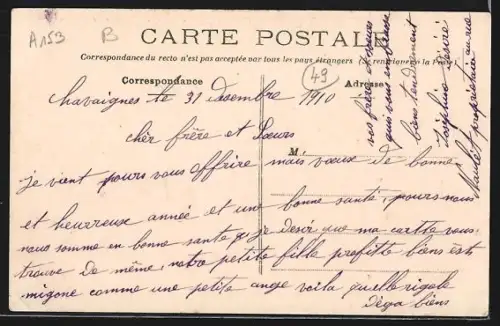 A153
B
CARTE POSTALE
Correspondance du recto n'est pas acceptée par tous les pays étrangers (Se renseigner à la Poste)
Correspondance
49
Adresse
Chavaignes le 31 desembre 1910
chèr frère et Sœurs
M
je vient pours vous offrire mais vœux de bonne
et heurreux année et une bonne santé, pours nous
nous somme en bonne santé je désir que ma cartte vous
trouve de même, notre petite fille profitte biens est
migone comme une petite ange voila quelle rigole
déga biens
vos frère et sœurs
quis vous embrasse
biens tendrement
Joséphine Désiré
Mauriet propriétaire